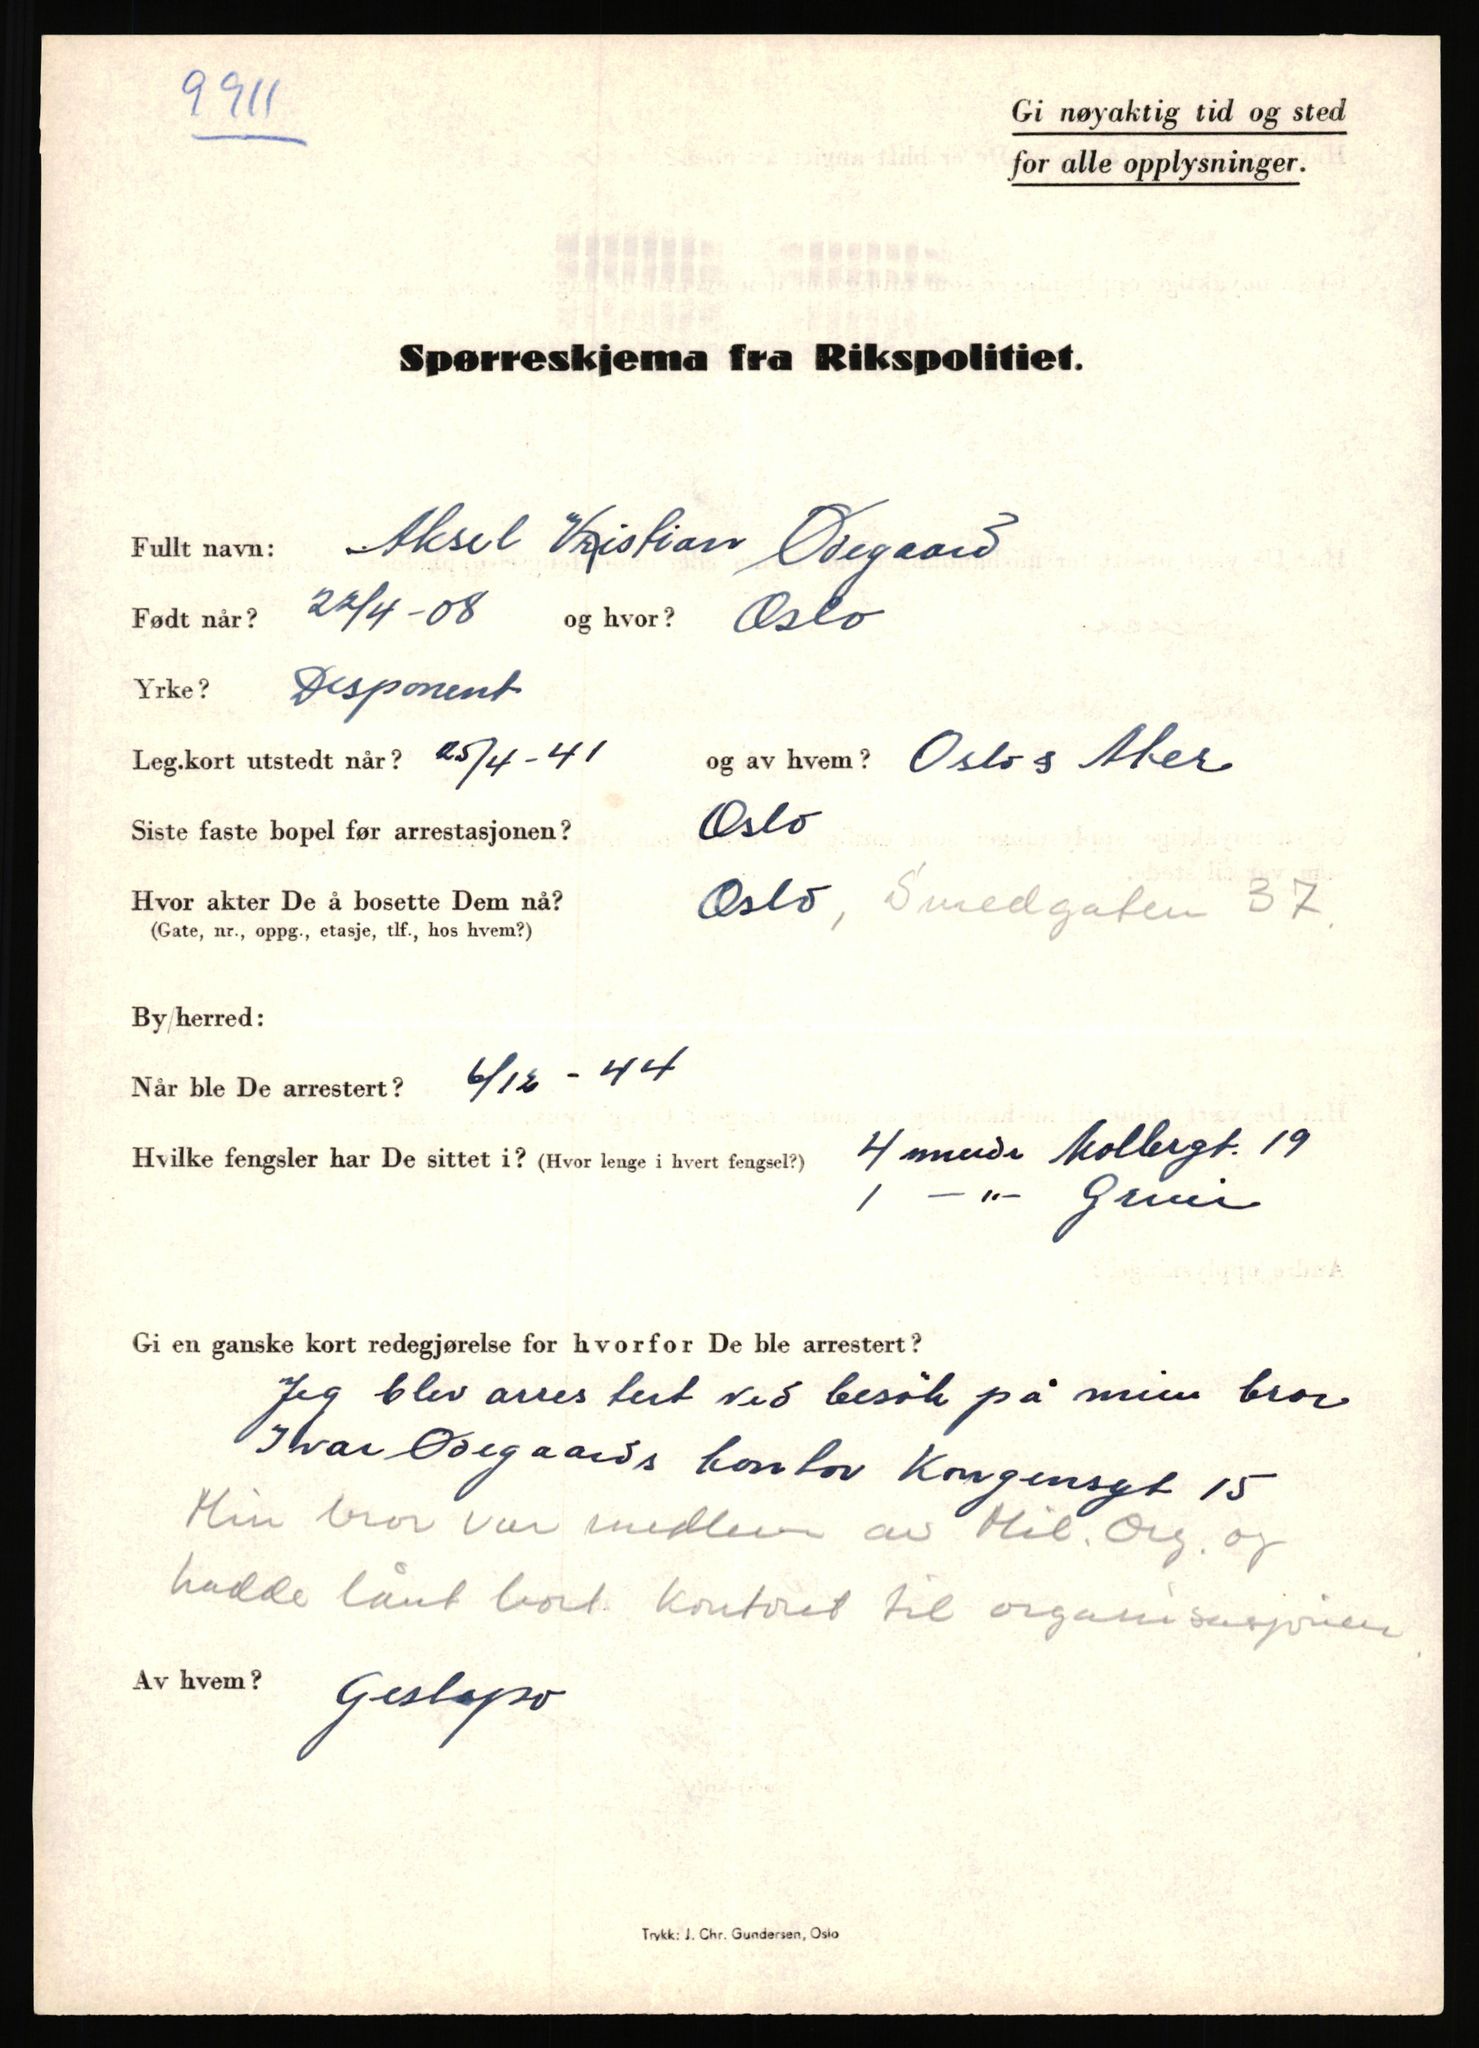 9911
Gi nøyaktig tid og sted
for alle opplysninger.
Spørreskjema fra Rikspolitiet.
Fullt navn: Aksel Kristian Ødegaard
Født når? 22/4-08 og hvor? Oslo
Yrke? Disponent
Leg.kort utstedt når? 25/4-41 og av hvem? Oslo & Aker
Siste faste bopel før arrestasjonen? Oslo
Hvor akter De å bosette Dem nå? Oslo, Smedgaten 37.
(Gate, nr., oppg., etasje, tlf., hos hvem?)
By/herred:
Når ble De arrestert? 6/12-44
Hvilke fengsler har De sittet i? (Hvor lenge i hvert fengsel?) 4 Mollergt. 19
1 -"- Grini
Gi en ganske kort redegjørelse for hvorfor De ble arrestert?
Jeg blev arrestert ved besök på min bror
Ivar Ødegaards kontor Kongensgt 15
Min bror var medlem av Mil. Org. og
hadde lånt bort kontoret til organisasjonen.
Av hvem? Gestapo
Trykk: J. Chr. Gundersen, Oslo